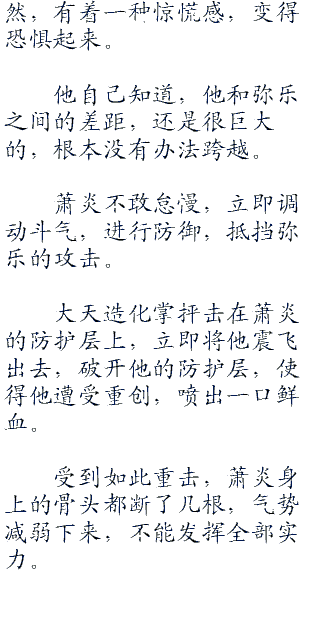 然，有着一种惊慌感，变得
恐惧起来。
他自己知道，他和弥乐
之间的差距，还是很巨大
的，根本没有办法跨越。
萧炎不敢怠慢，立即调
动斗气，进行防御，抵挡弥
乐的攻击。
大天造化掌抨击在萧炎
的防护层上，立即将他震飞
出去，破开他的防护层，使
得他遭受重创，喷出一口鲜
血。
受到如此重击，萧炎身
上的骨头都断了几根，气势
减弱下来，不能发挥全部实
力。